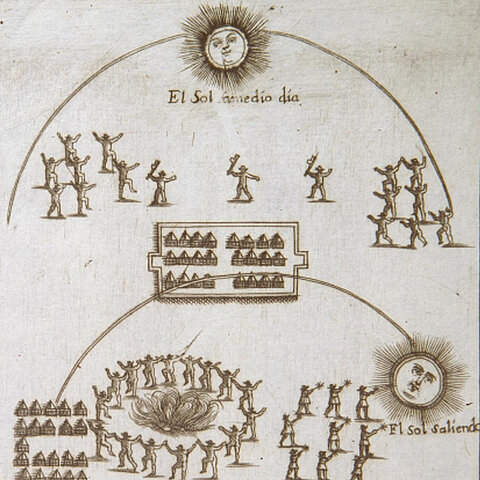 El Sol amedio dia
El Sol saliendo